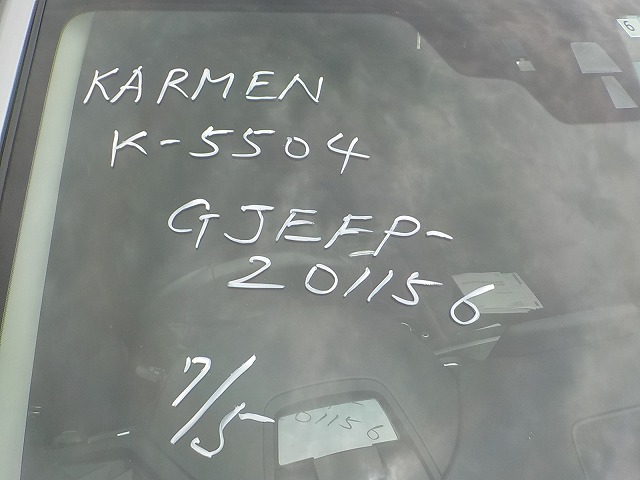 KARMEN
K-5504
GJEFP-
201156
7/5
01156
6